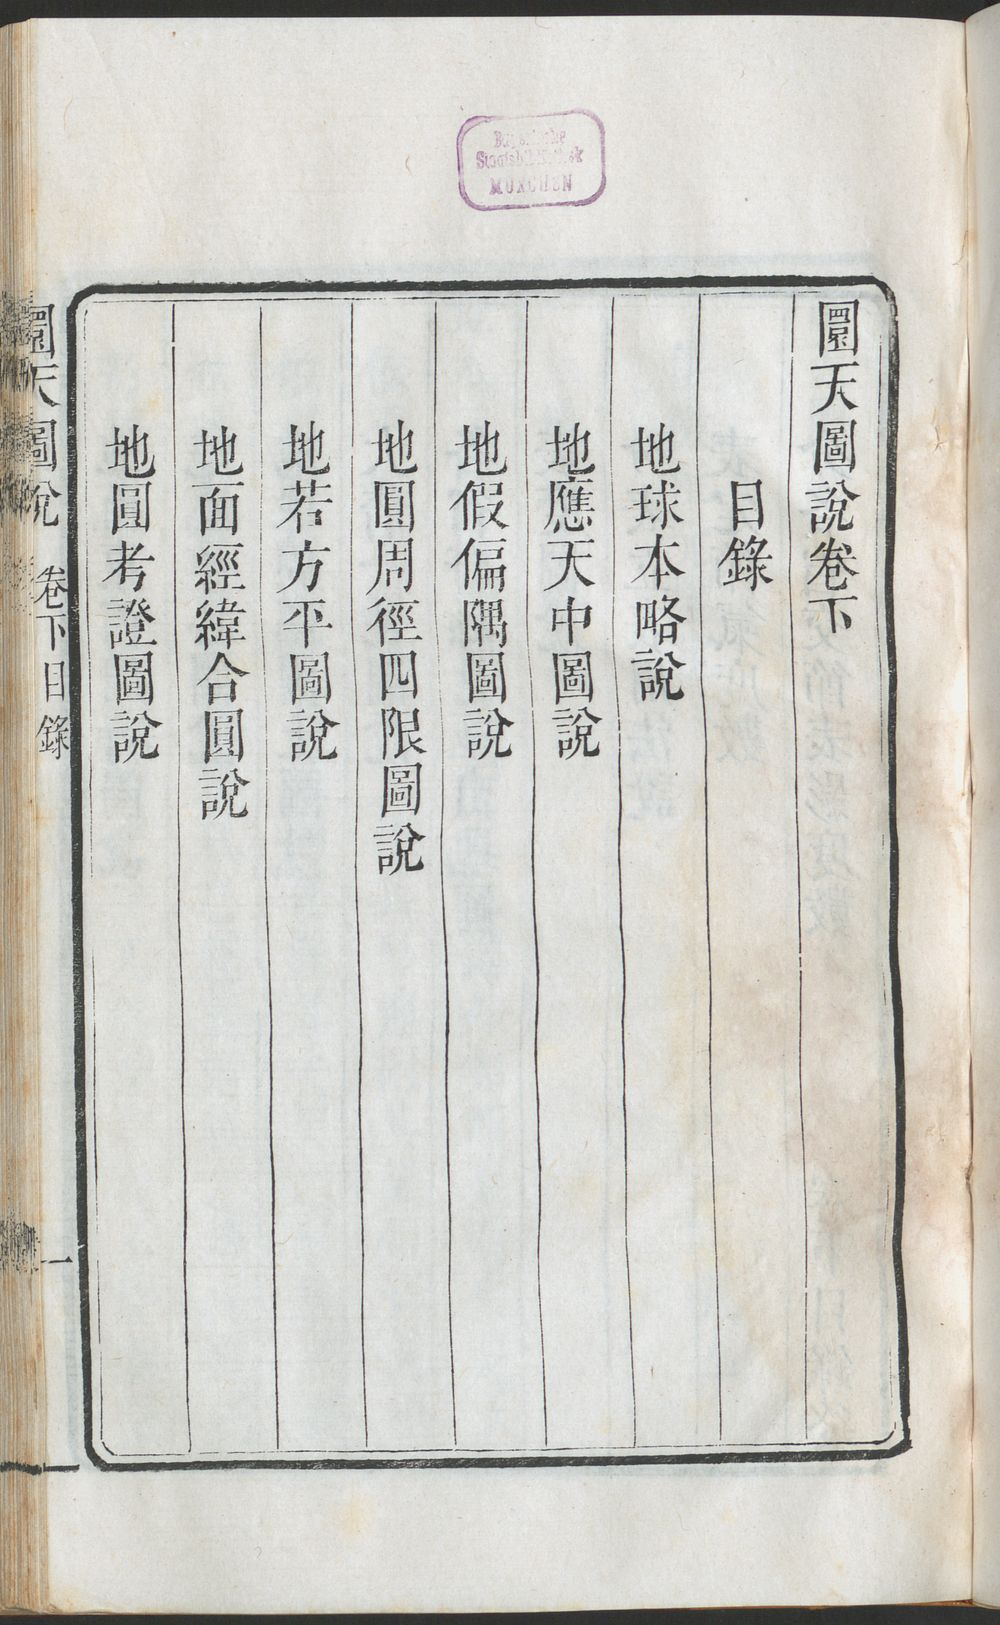 Bayerische
Staatsbibliothek
MÜNCHEN
圜天圖說卷下
目錄
地球本略說
地應天中圖說
地假偏隅圖說
地圓周徑四限圖說
地若方平圖說
地面經緯合圓說
地圓考證圖說
圜天圖說 卷下目錄 一